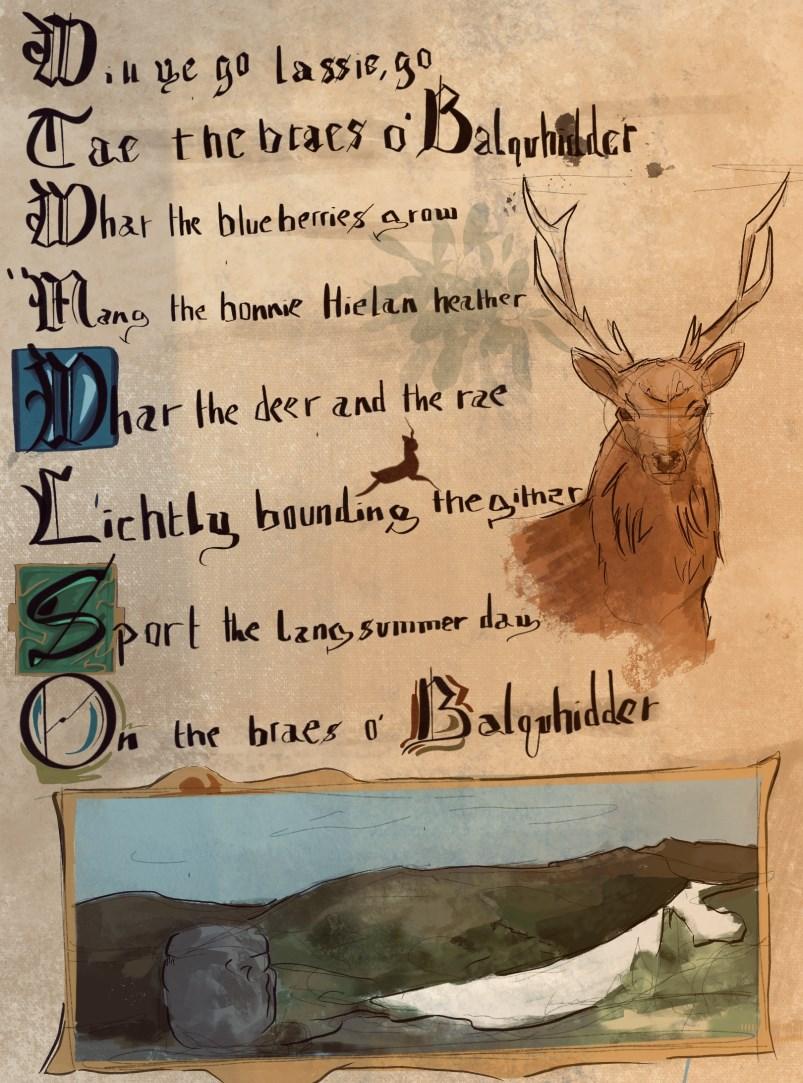 Will ye go lassie, go
Tae the braes o' Balquhidder
Whar the blueberries grow
'Mang the bonnie Hielan heather
Whar the deer and the rae
Lichtly bounding thegither
Sport the lang summer day
On the braes o' Balquhidder